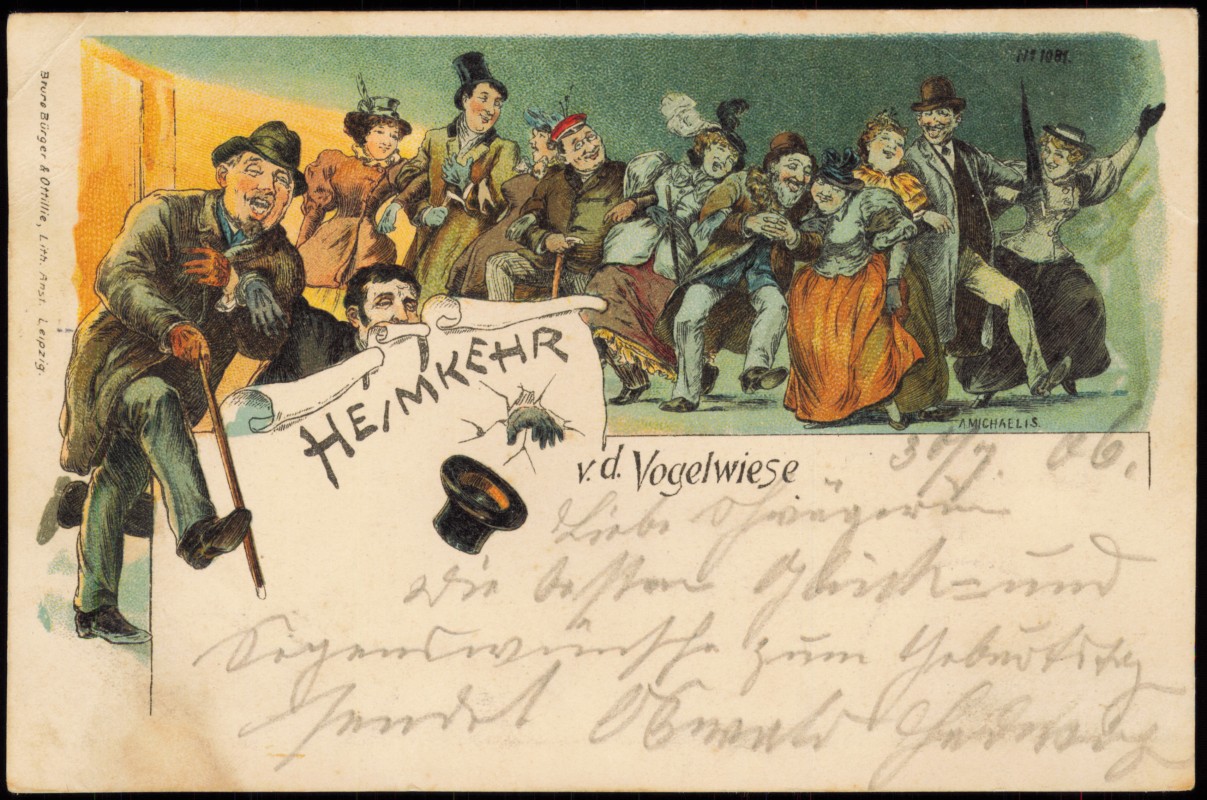 Nº 1081.
Bruno Bürger & Ottillie, Lith. Anst. Leipzig.
HEIMKEHR
A MICHAELIS.
v. d. Vogelwiese
30/7. 06.
Liebe Schwägerin
Die besten Glück= und
Segenswünsche zum Geburtstag
sendet Oswald Hedwig